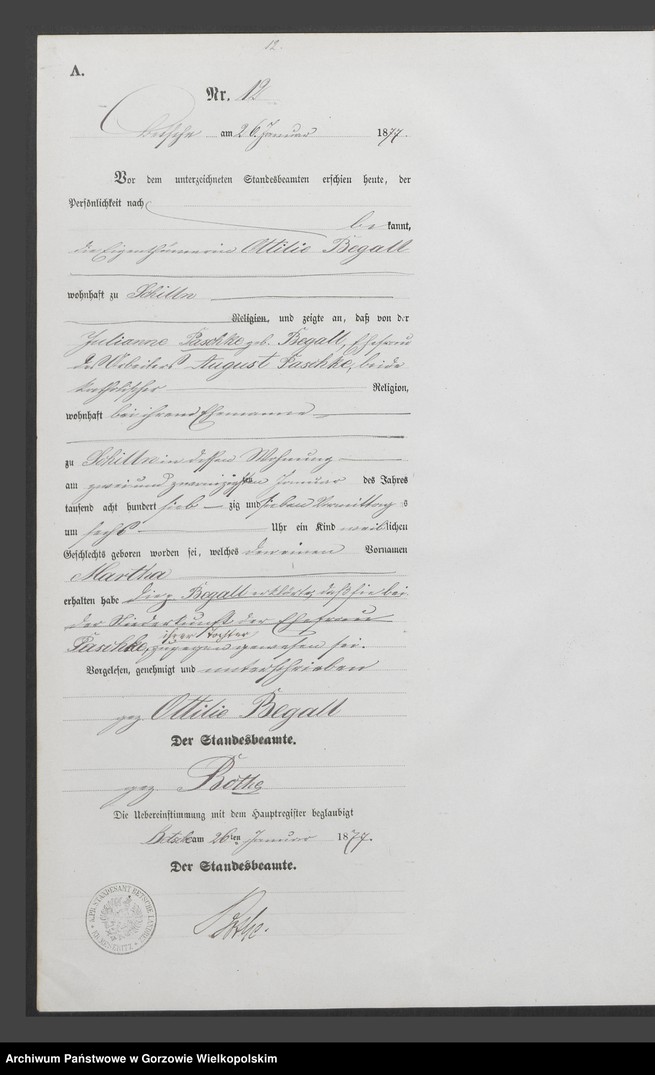 12.
A.
Nr. 12
Betsche am 26. Januar 1877.
Vor dem unterzeichneten Standesbeamten erschien heute, der
Persönlichkeit nach
bekannt,
die Eigenthümerin Ottilie Begall
wohnhaft zu Schilln
Religion, und zeigte an, daß von der
Julianne Paschke geb. Begall, Ehefrau
des Arbeiters August Paschke, beide
katholischer Religion,
wohnhaft bei ihrem Ehemanne
zu Schilln in dessen Wohnung
am zwei und zwanzigsten Januar des Jahres
tausend acht hundert siebzig und sieben Vormittags
um sechs Uhr ein Kind weiblichen
Geschlechts geboren worden sei, welches den einen Vornamen
Martha
erhalten habe die p. Begall erklärte, daß sie bei
der Niederkunft der Ehefrau
ihrer Tochter
Paschke, zugegen gewesen sei.
Vorgelesen, genehmigt und unterschrieben
gez Ottilie Begall
Der Standesbeamte.
gez Bothe
Die Uebereinstimmung mit dem Hauptregister beglaubigt
Betsche am 26ten Januar 1877.
Der Standesbeamte.
Bothe.
KPR. STANDESAMT BETSCHE LANDBEZ. KR. MESERITZ
Archiwum Państwowe w Gorzowie Wielkopolskim